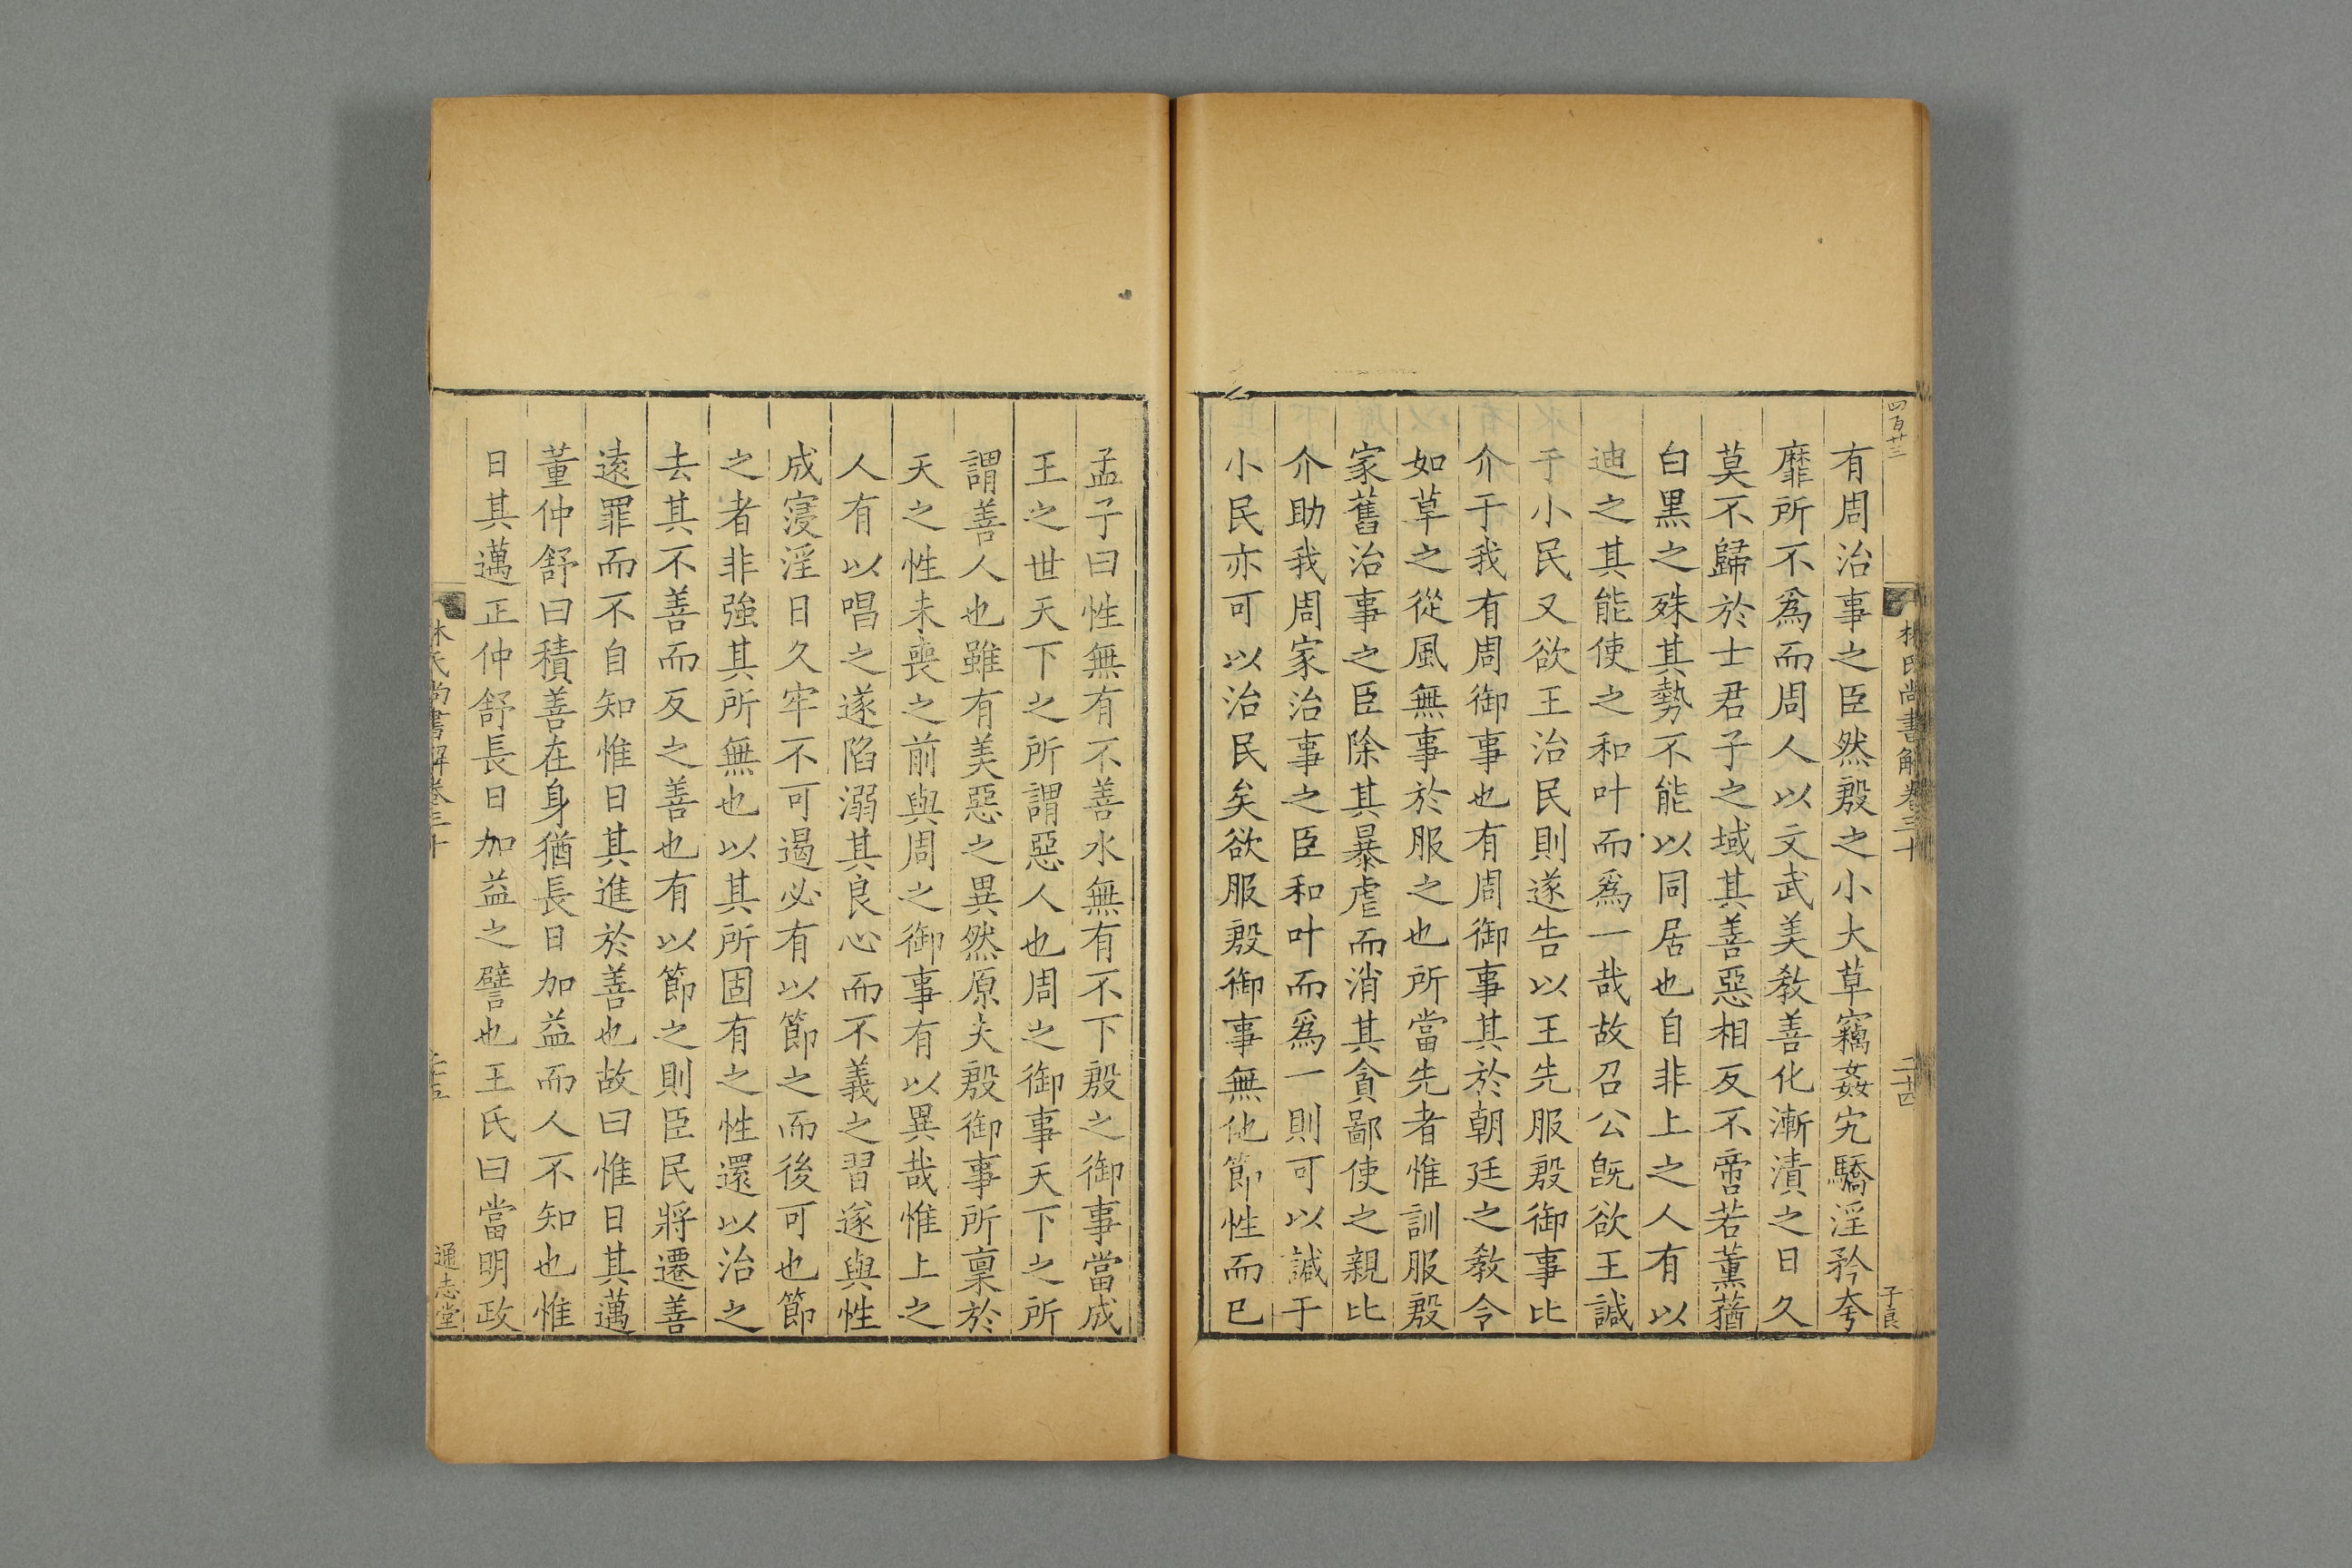 四百廿三
林氏尚書解卷三十
二十四
子良
有周治事之臣然殷之小大草竊姦宄驕淫矜夸
靡所不爲而周人以文武美敎善化漸漬之日久
莫不歸於士君子之域其善惡相反不啻若薰蕕
白黑之殊其勢不能以同居也自非上之人有以
迪之其能使之和叶而爲一哉故召公旣欲王諴
于小民又欲王治民則遂告以王先服殷御事比
介于我有周御事也有周御事其於朝廷之敎令
如草之從風無事於服之也所當先者惟訓服殷
家舊治事之臣除其暴虐而消其貪鄙使之親比
介助我周家治事之臣和叶而爲一則可以諴于
小民亦可以治民矣欲服殷御事無他節性而已
孟子曰性無有不善水無有不下殷之御事當成
王之世天下之所謂惡人也周之御事天下之所
謂善人也雖有美惡之異然原夫殷御事所稟於
天之性未喪之前與周之御事有以異哉惟上之
人有以唱之遂陷溺其良心而不義之習遂與性
成寖淫日久牢不可遏必有以節之而後可也節
之者非強其所無也以其所固有之性還以治之
去其不善而反之善也有以節之則臣民將遷善
遠罪而不自知惟日其進於善也故曰惟日其邁
董仲舒曰積善在身猶長日加益而人不知也惟
日其邁正仲舒長日加益之譬也王氏曰當明政
林氏尚書解卷三十
二十五
通志堂